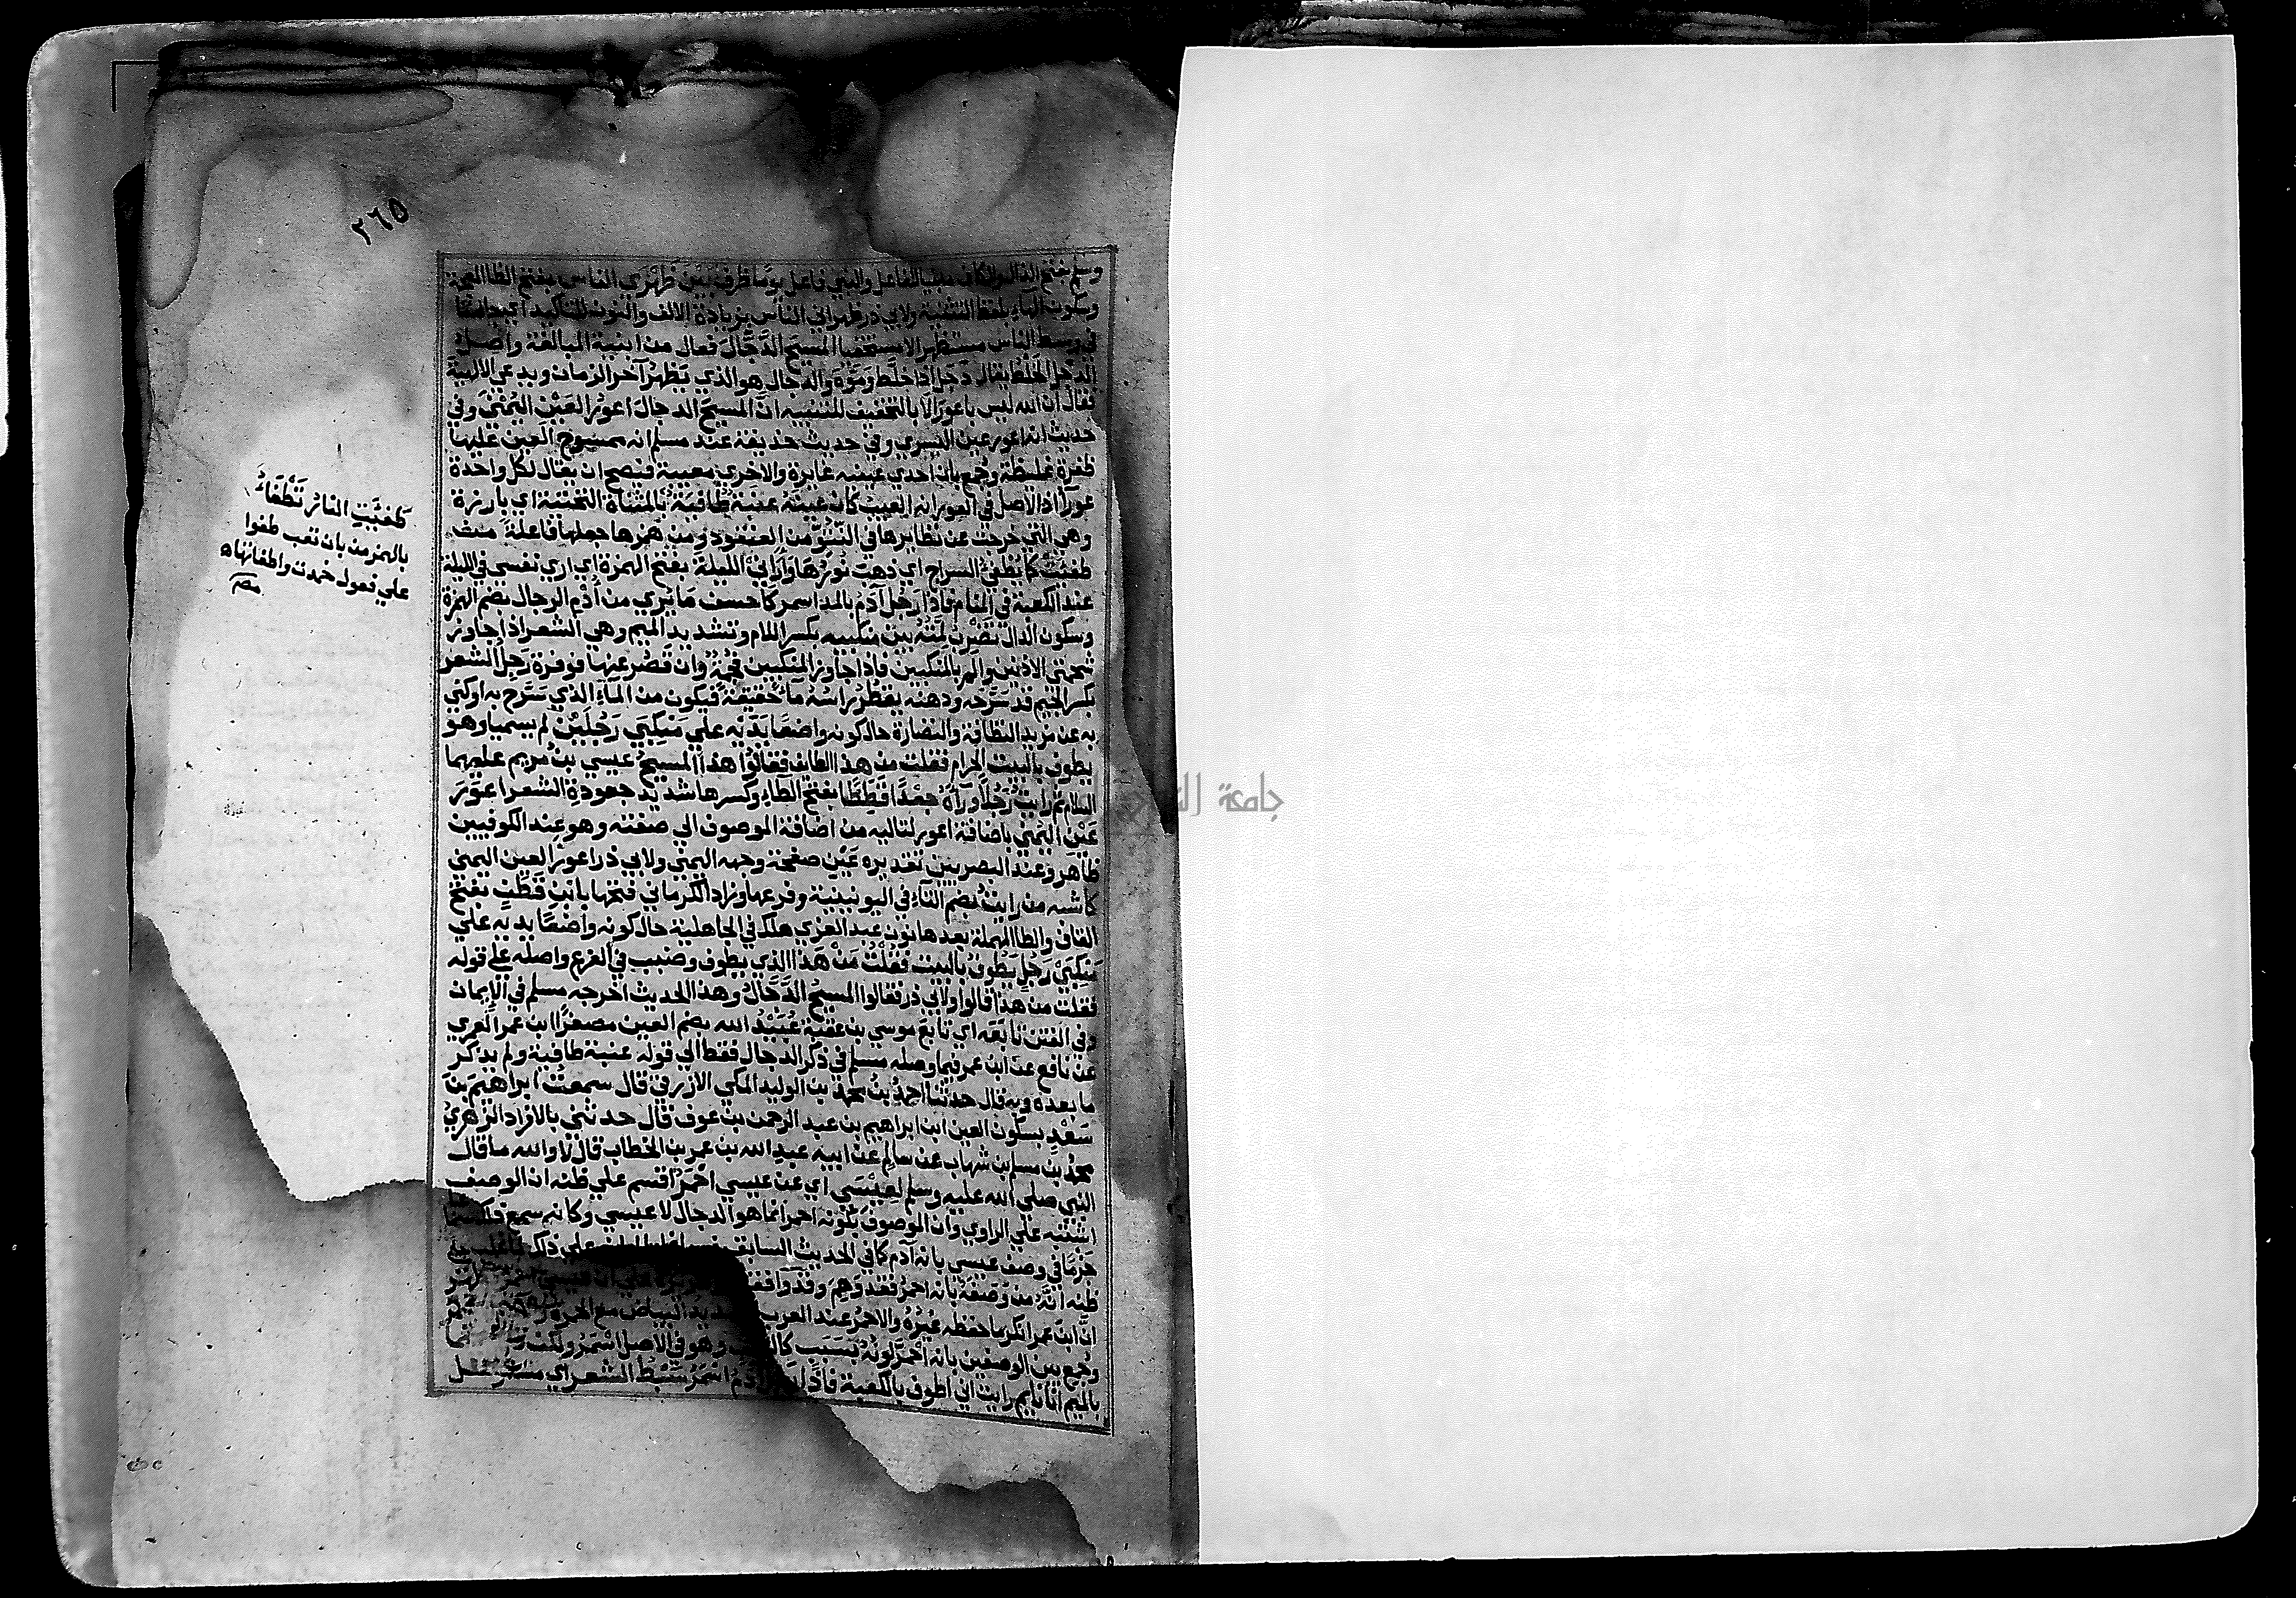 ٢٦٥
وسلم بفتح الذال والكاف مبنيا للفاعل والنبي فاعل يوما ظرف بَيْنَ ظَهْرَيِ الناس بفتح الظا المعجمة
وسكون الهاء بلفظ التثنية ولابي ذر ظهراني الناس بزيادة الالف والنون للتاكيد اي جالسا
في وسط الناس مستظهرا لا مستخفيا المسيحَ الدَّجَّالَ فعال من ابنية المبالغة واصل
الدجل الخلط يقال دجل اذا خلط وموّه والدجال هو الذي يظهر آخر الزمان ويدعي الالهية
فقال ان الله ليس باعور الا بالتخفيف للتنبيه انّ المسيحَ الدجالَ اعورُ العَيْنِ اليُمْنَي وفي
حديث انه اعور عين اليسري وفي حديث حذيفة عند مسلم انه ممسوح العين عليها
ظفرة غليظة وجمع بان احدي عينيه غايرة والاخري معيبة فيصح ان يقال لكل واحدة
عورآ اذ الاصل في العور انه العيب كان عينه عنبة طافية بالمثناة التحتية اي بارزة
وهي التي خرجت عن نظايرها في النتو من العنقود ومن همزها جعلها فاعلة من
طفئت كما يطفئ السراج اي ذهب نورها وأراني الليلة بفتح الهمزة اي اري نفسي في الليلة
عند الكعبة في المنام فاذا رجل آدم بالمد اسمر كاحسن ما يري من أُدْمِ الرجال بضم الهمزة
وسكون الدال تضرب لمته بين منكبيه بكسر اللام وتشديد الميم وهي الشعر اذا جاوز
شحمتي الاذنين والم بالمنكبين فاذا جاوز المنكبين فجمة وان قصر عنها فوفرة رَجِلُ الشعر
بكسر الجيم قد سرّحه ودهنه يقطر راسه مآء حقيقة فيكون من المآء الذي سَرَّح به او كني
به عن مزيد النظافة والنضارة حال كونه واضعا يَدَيْه علي مَنْكِبَي رَجُلَيْنِ لم يسميا وهو
يطوف بالبيت الحرام فقلت من هذا الطائف فقالوا هذا المسيحُ عيسي بنُ مريم عليهما
السلام ثم رايت رَجُلا ورآهُ جَعْدًا قَطِطًا بفتح الطاء وكسرها شديد جعودة الشعر اعورَ
عَيْنِ اليُمْنَي باضافة اعور لتاليه من اضافة الموصوف الي صفته وهو عند الكوفيين
ظاهر وعند البصريين تقديره عَيْنِ صفحة وجهه اليمني ولابي ذر اعور العين اليمني
كاشبه من رايتُ بضم التآء في اليونينية وفرعها وزاد الكرماني فتحها بابن قَطَنٍ بفتح
القاف والطا المهملة بعدها نون عبد العزي هلك في الجاهلية حال كونه واضعًا يديه علي
مَنْكِبَيْ رَجُلٍ يَطوفُ بالبيت فقُلْتُ مَنْ هَذا الذي يطوف وضبب في الفرع واصله علي قوله
فقلت من هذا قالوا ولابي ذر فقالوا المسيحُ الدَّجَّالُ وهذا الحديث اخرجه مسلم في الايمان
وفي الفتن تابَعَه اي تابع موسي بن عقبة عُبَيْدُ الله بضم العين مصغرًا ابن عمر العمري
عن نافع عن ابن عمر فيما وصله مسلم في ذكر الدجال فقط الي قوله عنبة طافية ولم يذكر
ما بعده وبه قال حدثنا احمدُ بنُ محمد بن الوليد المكي الازرقي قال سمعتُ ابراهيمَ بنَ
سَعْدٍ بسكون العين ابن ابراهيم بن عبد الرحمن بن عوف قال حدثني بالافراد الزهريُّ
محمد بن مسلم بن شهاب عن سالم عن ابيه عبد الله بن عمر بن الخطاب قال لا والله ما قال
النبي صلي الله عليه وسلم لِعِيسَي اي عن عيسي احْمَرُ اقسم علي ظنه ان الوصف
اشتبه علي الراوي وان الموصوف بكونه احمر انما هو الدجال لا عيسي وكانه سمع ذلك سماعا
جزما في وصف عيسي بانه آدم كما في الحديث السابق علي ذلك
ظنه انّ من وصَفَهُ بانه احمر فقد وَهِمَ وقد وافقه علي ان عيسي احمر
انّ ابن عمر انكر ما حفظه غيره والاحمر عند العرب الشديد البياض مع الحمرة
وجُمع بين الوصفين بانه احمَرّ لونُه بسبب كالتعب وهو في الاصل اسمر ولكن
بالميم انا نايم رايت اني اطوف بالكعبة فاذا رجل آدَمُ اسمر سَبْطُ الشعر اي مسترسل
طَفِئَتِ النار تَطْفَأُ
بالهمز من باب تعب طفوا
علي فعول خمدت واطفاتها ه
مص
جامعة